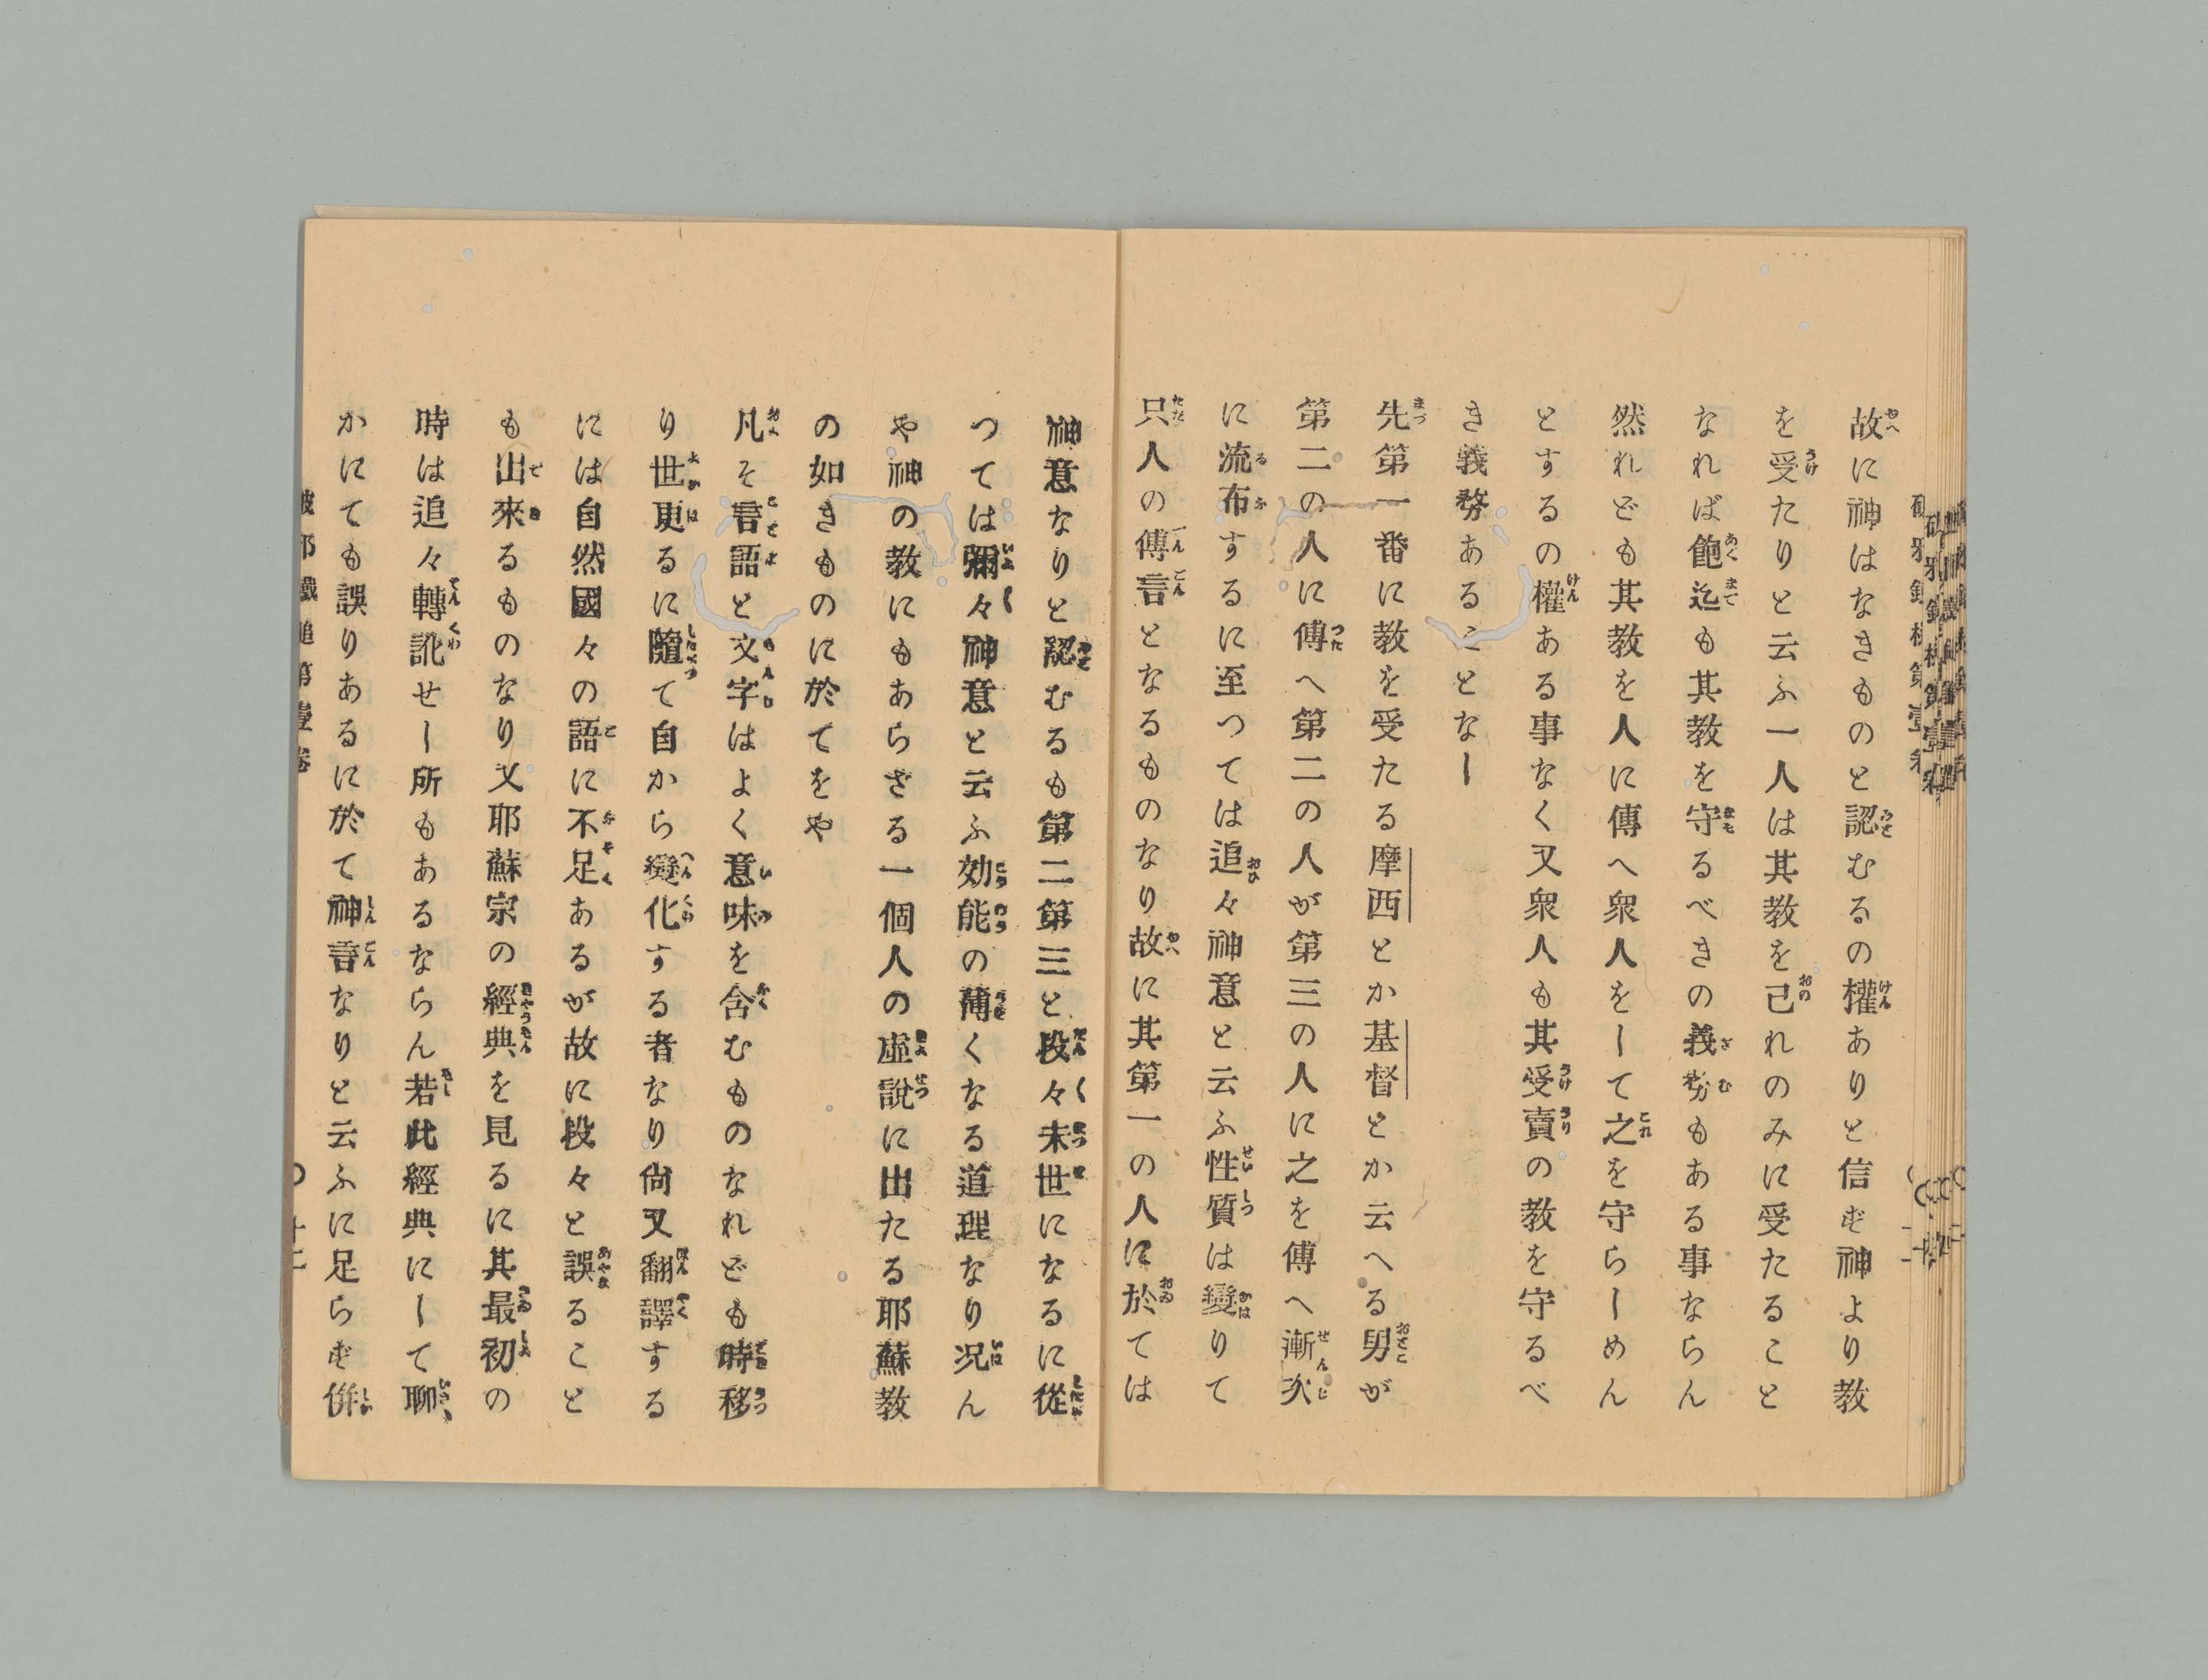 故に神はなきものと認むるの權ありと信ず神より教
を受たりと云ふ一人は其教を己れのみに受たること
なれば飽迄も其教を守るべきの義務もある事ならん
然れども其教を人に傳へ衆人をして之を守らしめん
とするの權ある事なく又衆人も其受賣の教を守るべ
き義務あることなし
先第一番に教を受たる摩西とか基督とか云へる男が
第二の人に傳へ第二の人が第三の人に之を傳へ漸次
に流布するに至つては追々神意と云ふ性質は變りて
只人の傳言となるものなり故に其第一の人に於ては
神意なりと認むるも第二第三と段々末世になるに從
つては彌々神意と云ふ効能の薄くなる道理なり况ん
や神の教にもあらざる一個人の虛說に出たる耶蘇教
の如きものに於てをや
凡そ言語と文字はよく意味を含むものなれども時移
り世更るに隨て自から變化する者なり尙又翻譯する
には自然國々の語に不足あるが故に段々と誤ること
も出來るものなり又耶蘇宗の經典を見るに其最初の
時は追々轉訛せし所もあるならん若此經典にして聊
かにても誤りあるに於て神言なりと云ふに足らず併